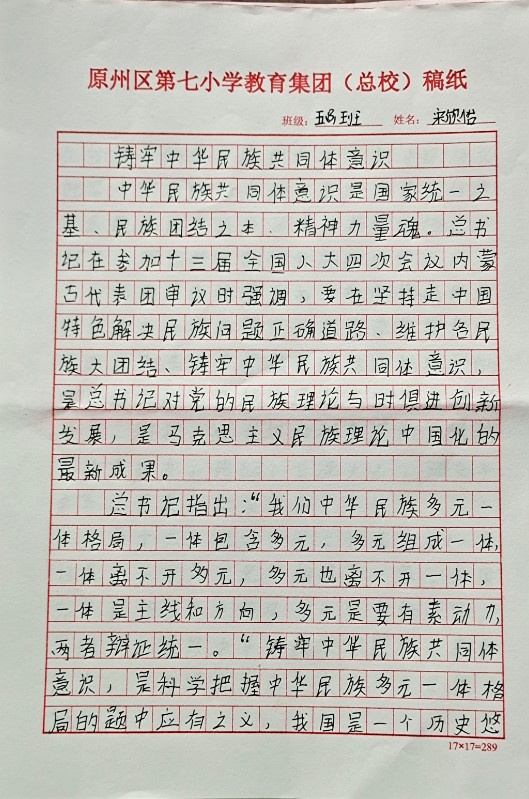 原州区第七小学教育集团（总校）稿纸
班级：五(5)班 姓名：宋欣怡
铸牢中华民族共同体意识
中华民族共同体意识是国家统一之
基、民族团结之本、精神力量魂。总书
记在参加十三届全国人大四次会议内蒙
古代表团审议时强调，要在坚持走中国
特色解决民族问题正确道路、维护各民
族大团结、铸牢中华民族共同体意识，
是总书记对党的民族理论与时俱进创新
发展，是马克思主义民族理论中国化的
最新成果。
总书记指出：“我们中华民族多元一
体格局，一体包含多元，多元组成一体，
一体离不开多元，多元也离不开一体，
一体是主线和方向，多元是要有素动力，
两者辩证统一。“铸牢中华民族共同体
意识，是科学把握中华民族多元一体格
局的题中应有之义，我国是一个历史悠
17×17=289